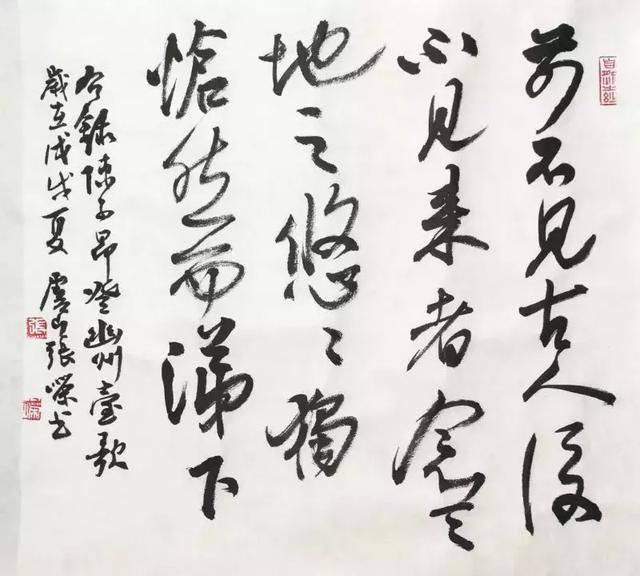 前不見古人後
不見来者念天
地之悠々獨
愴然而涕下
右録陳子昂登幽州臺歌
歲在戊戌夏 虞山張书
張